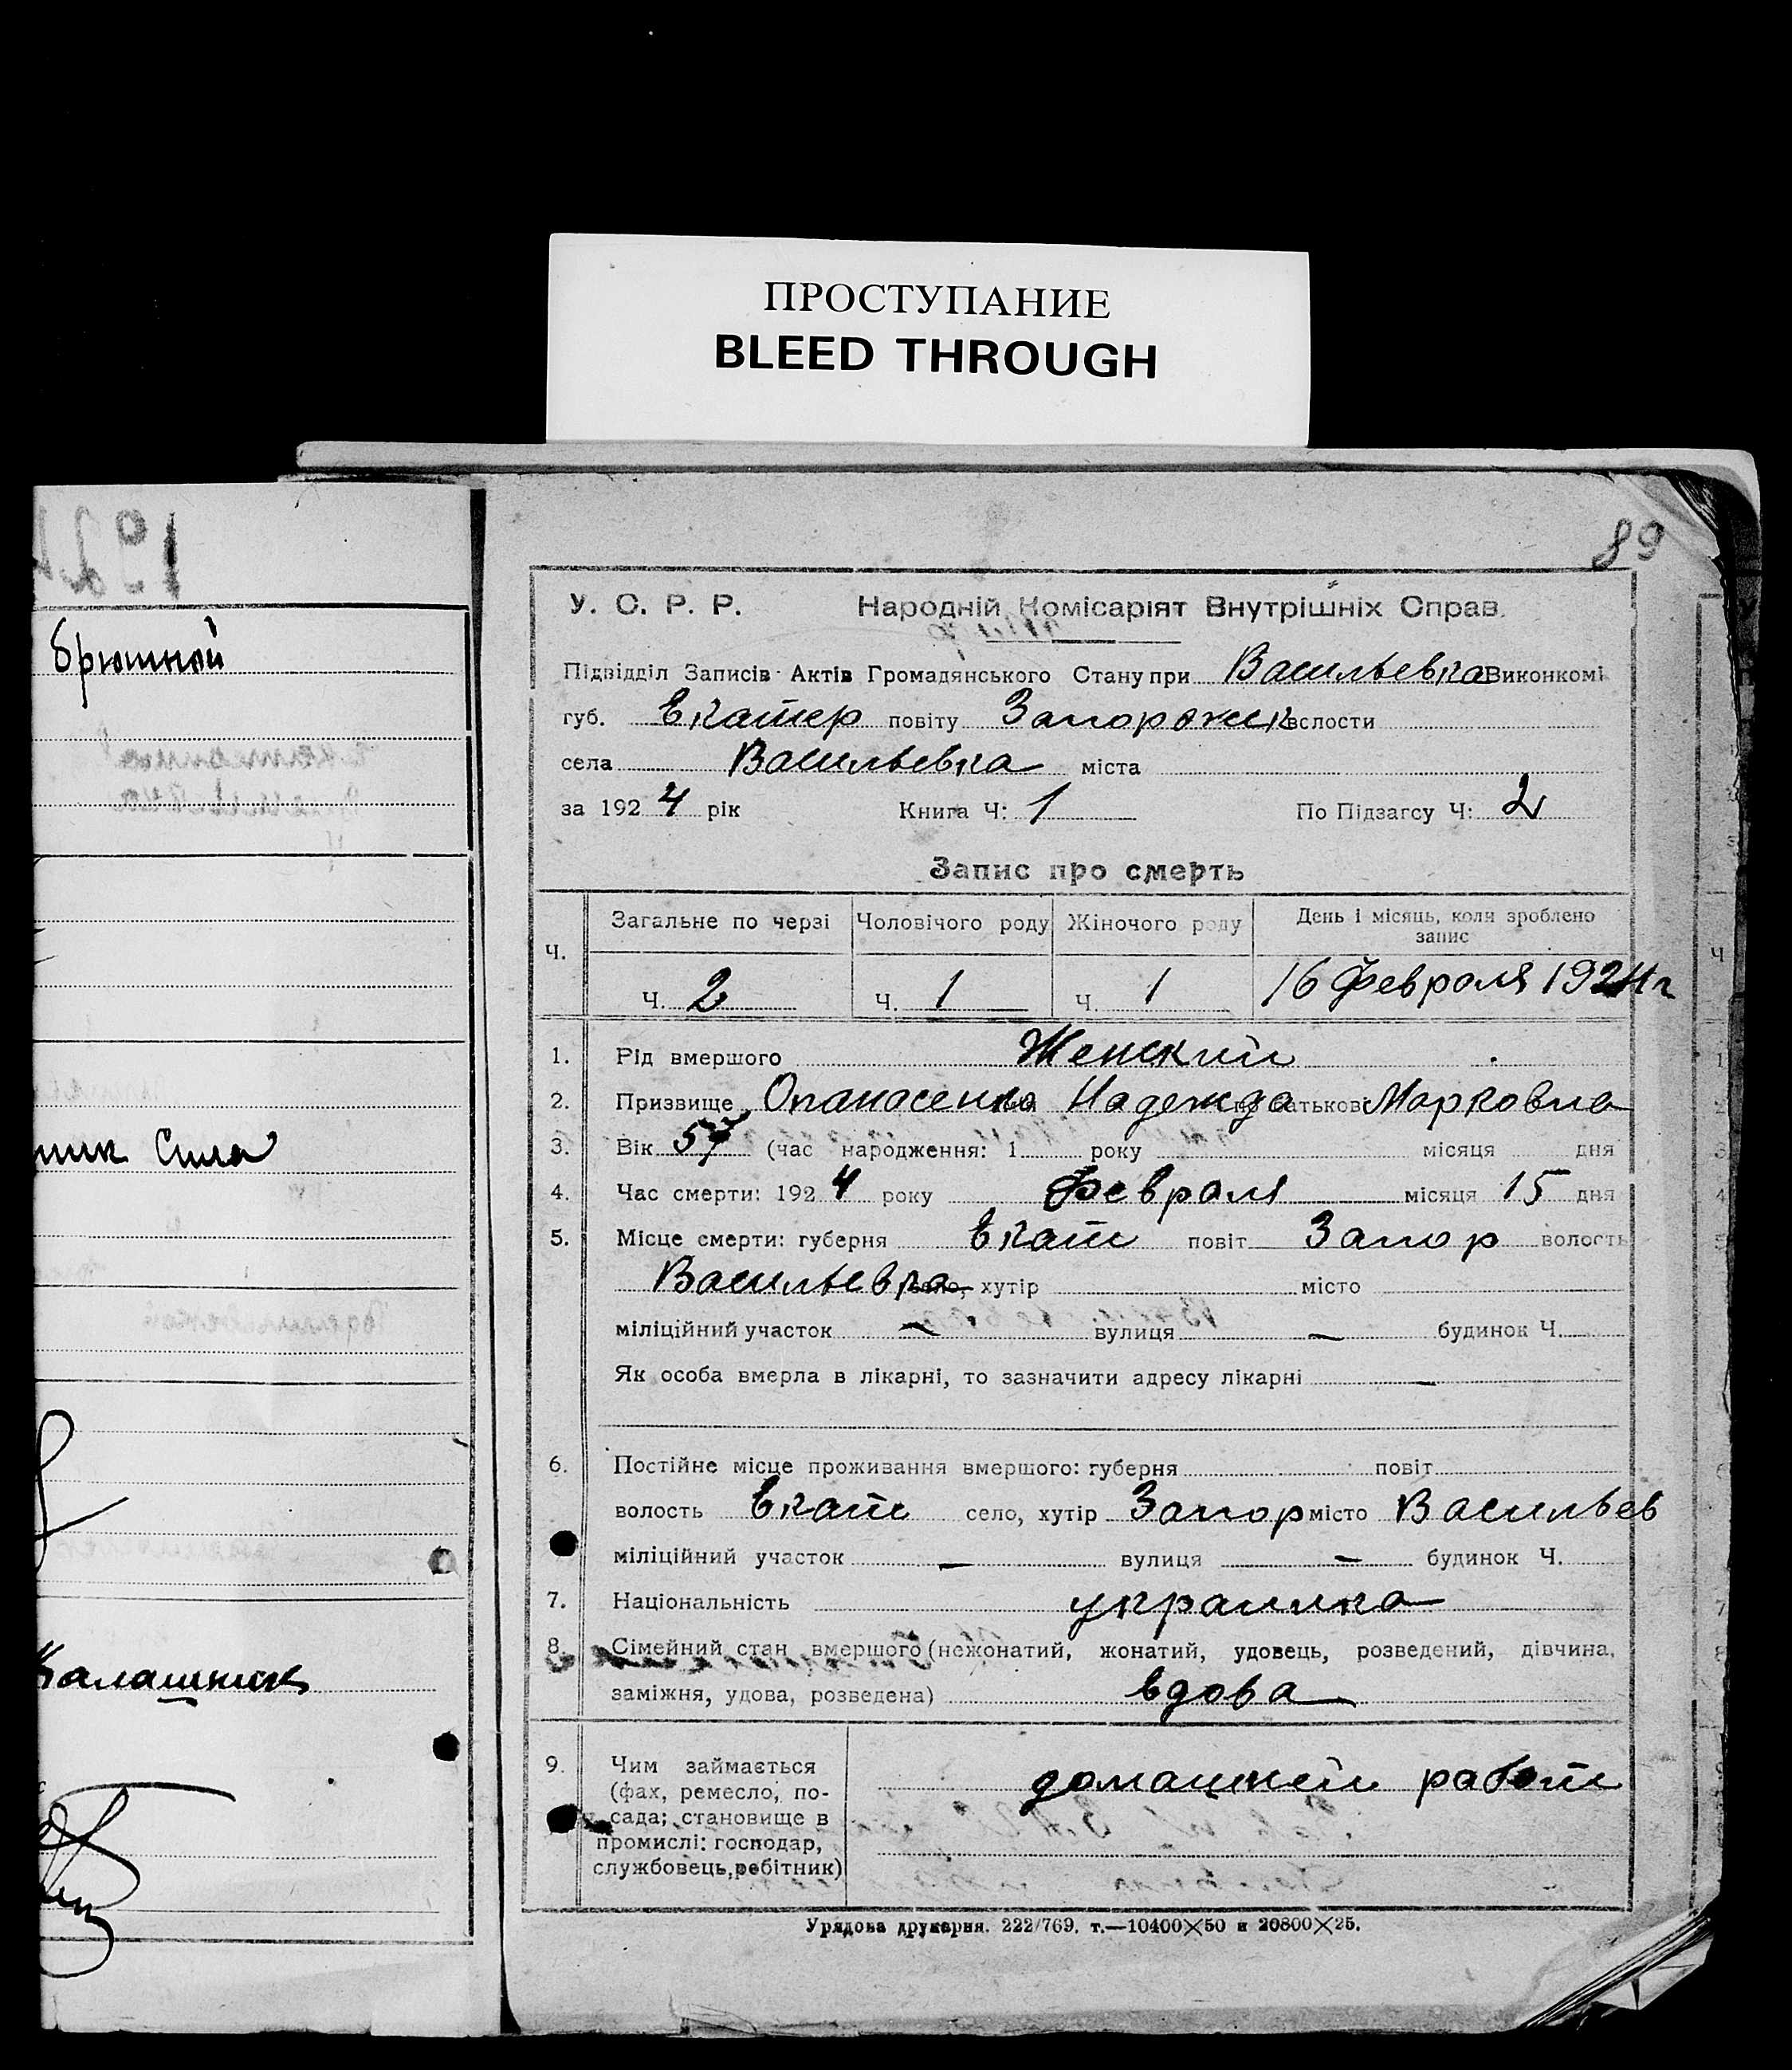 ПРОСТУПАНИЕ
BLEED THROUGH
брюшной
Сила
Калашник
89
У. С. Р. Р. Народній Комісаріят Внутрішніх Справ.
Підвідділ Записів Актів Громадянського Стану при Васильевка Виконкомі
губ. Екатер повіту Запорожск волости
села Васильевка міста
за 1924 рік Книга Ч: 1 По Підзагсу Ч: 2
Запис про смерть
Ч. Загальне по черзі Чоловічого роду Жіночого роду День і місяць, коли зроблено запис
Ч. 2 Ч. 1 Ч. 1 16 Февраля 1924 г
1. Рід вмершого Женский
2. Призвище Опанасенко Надежда по батькові Марковна
3. Вік 57 (час народження: 1 року місяця дня
4. Час смерти: 1924 року Февраля місяця 15 дня
5. Місце смерти: губерня Екат повіт Запор волость
Васильевка село, хутір місто
міліційний участок — вулиця — будинок Ч.
Як особа вмерла в лікарні, то зазначити адресу лікарні —
6. Постійне місце проживання вмершого: губерня повіт
волость Екат село, хутір Запор місто Васильев
міліційний участок — вулиця — будинок Ч.
7. Національність украинка
8. Сімейний стан вмершого (нежонатий, жонатий, удовець, розведений, дівчина,
заміжня, удова, розведена) вдова
9. Чим займається домашней работ
(фах, ремесло, по-
сада; становище в
промислі: господар,
службовець, робітник)
Урядова друкарня. 222/769. т.—10400×50 и 20800×25.